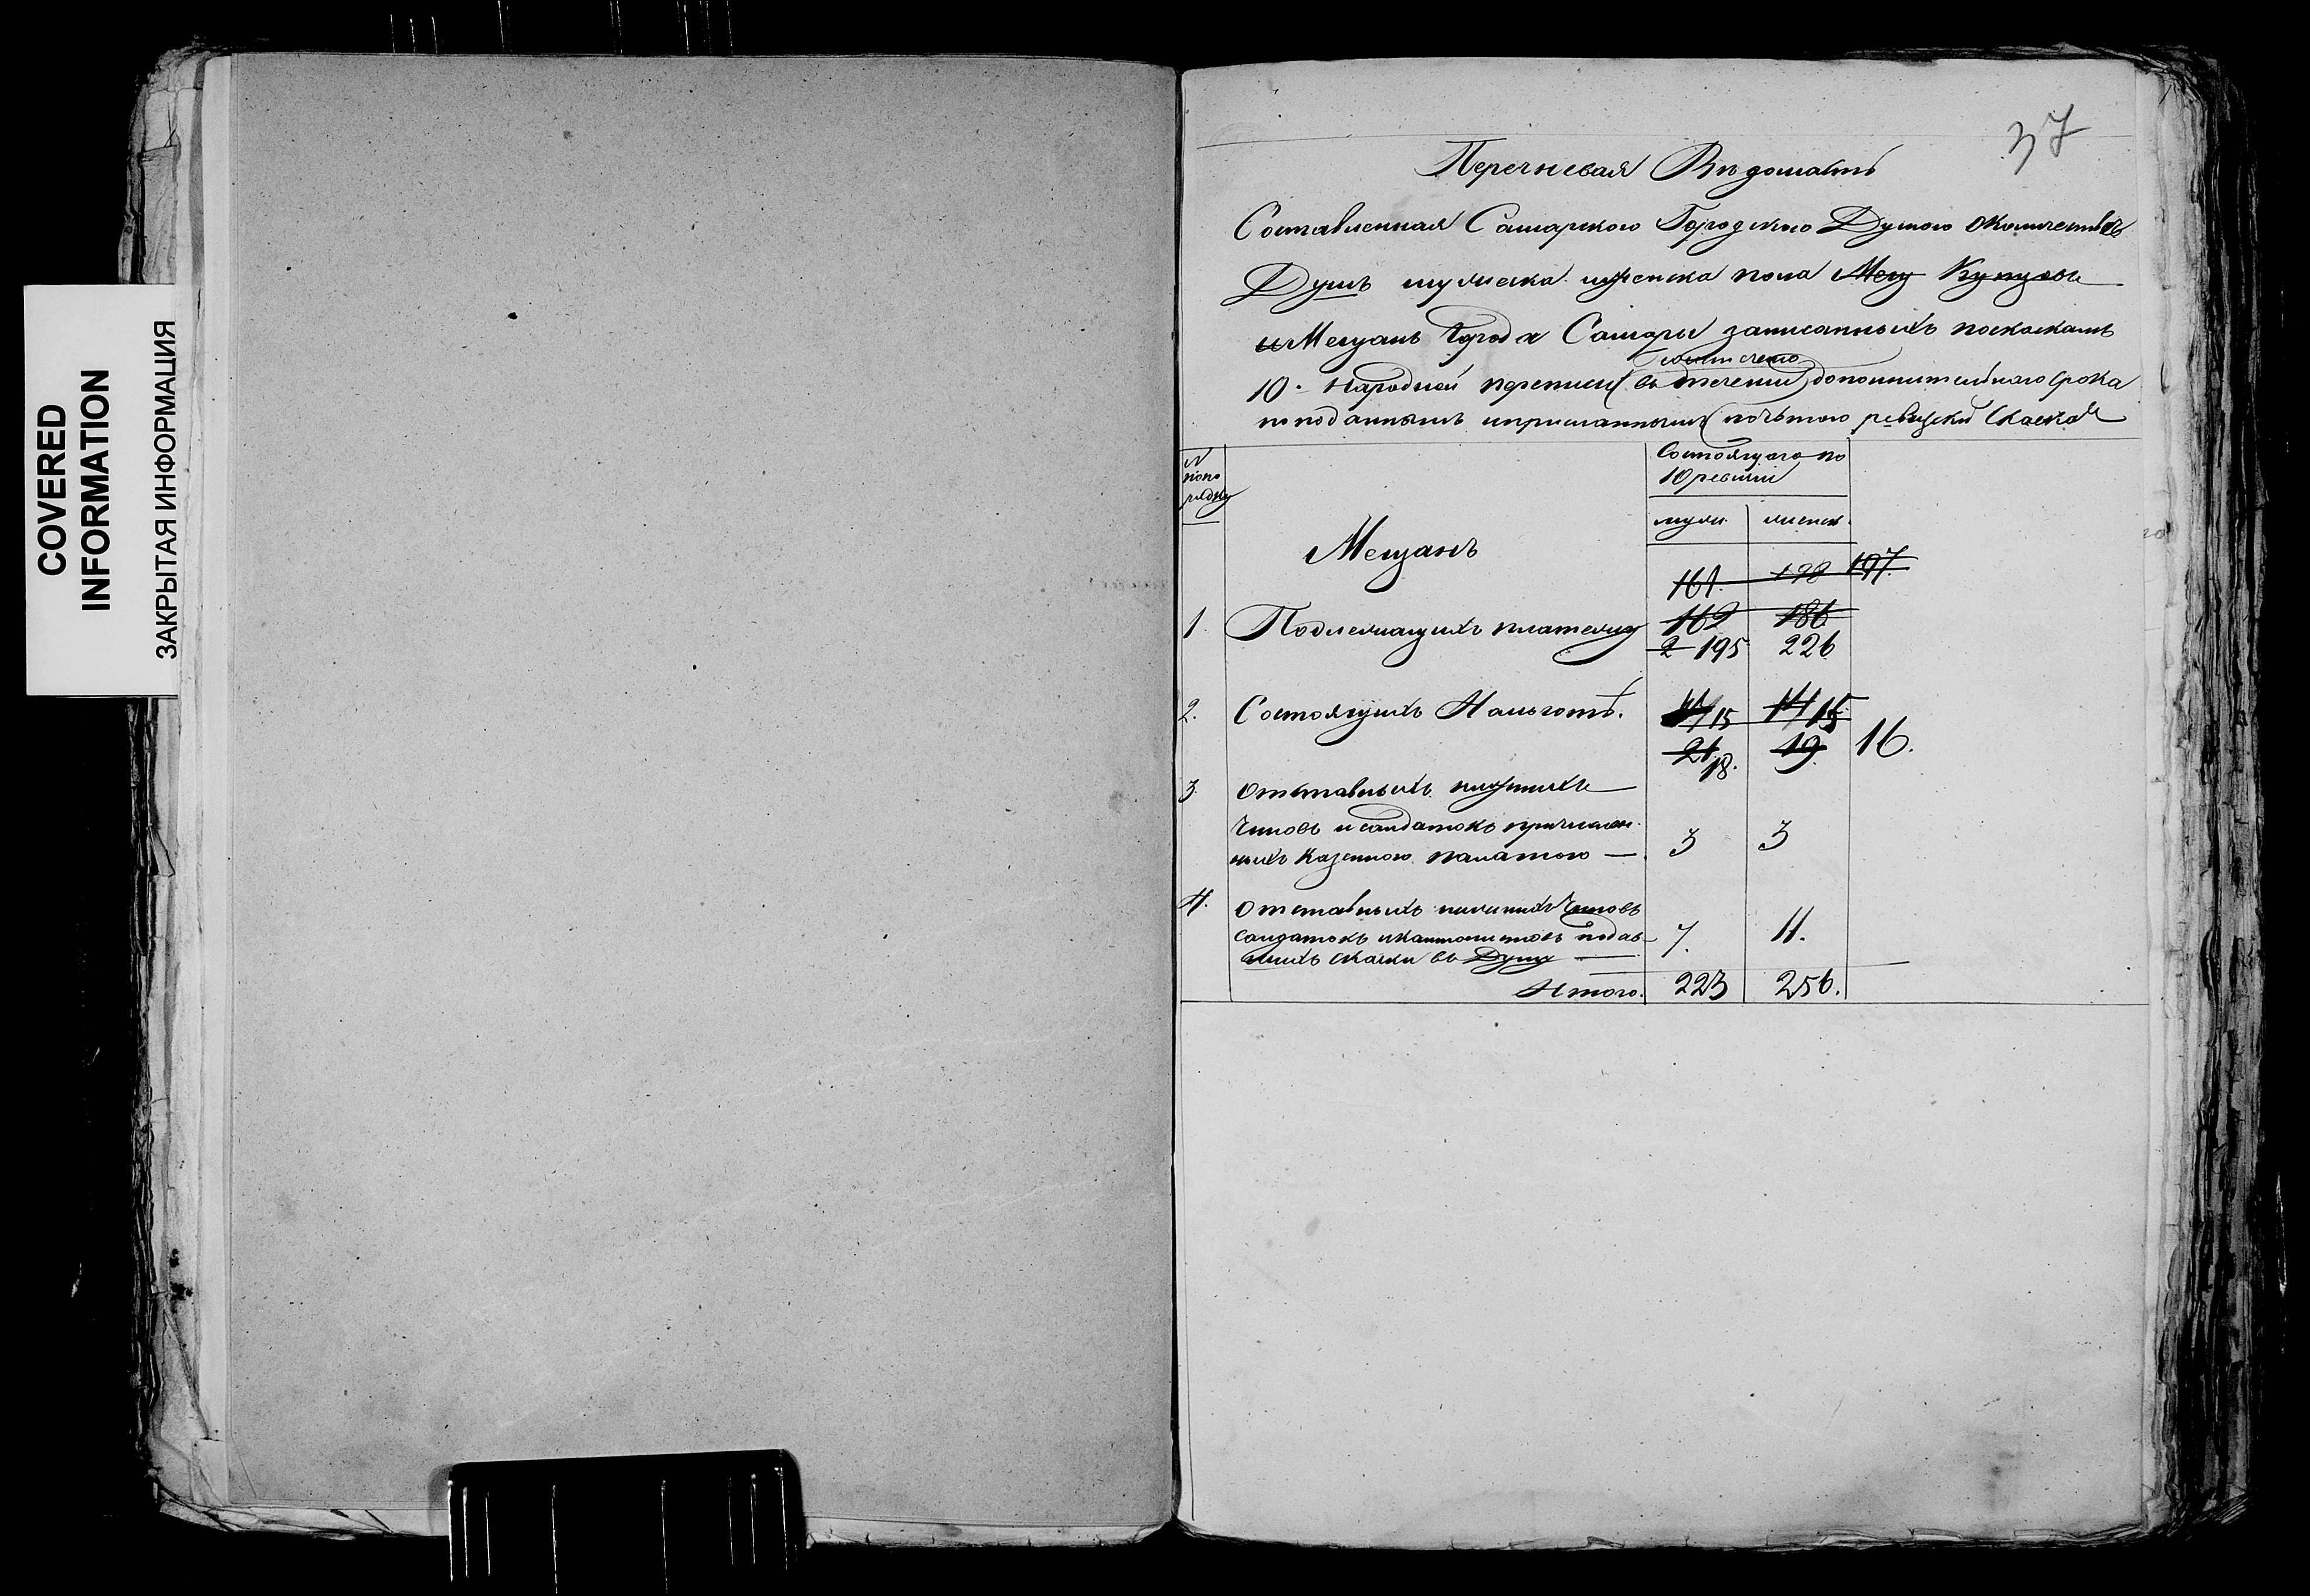 COVERED
INFORMATION
ЗАКРЫТАЯ ИНФОРМАЦИЯ
37
Перечневая Вѣдомость
Составленная Самарскою Городскою Думою околичествѣ
Душъ мужеска иженска пола Мещ Купцовъ
иМещанъ Города Самары записанныхъ посказкамъ
10. Народной переписи въ течении дополнительного срока
поподаннымъ иприсланнымъ почьтою ревизски сказкам
N
попо
рядку
Состоящого по
10 ревизии
муж.
женск.
Мещанъ
161. 198 197.
1. Подлежащихъ платежу 169 186
2 195 226
2. Состоящихъ Нальготѣ. 15 14 15
21 18. 19 16.
3. Отставныхъ нижнихъ
Чиновъ и солдатокъ причислен
ныхъ Казенною палатою — 3 3
4. Отставныхъ нижнихъ Чиновъ
солдатокъ икантонистовъ подав
шихъ сказки въ Думу — 7. 11.
Итого. 223 256.